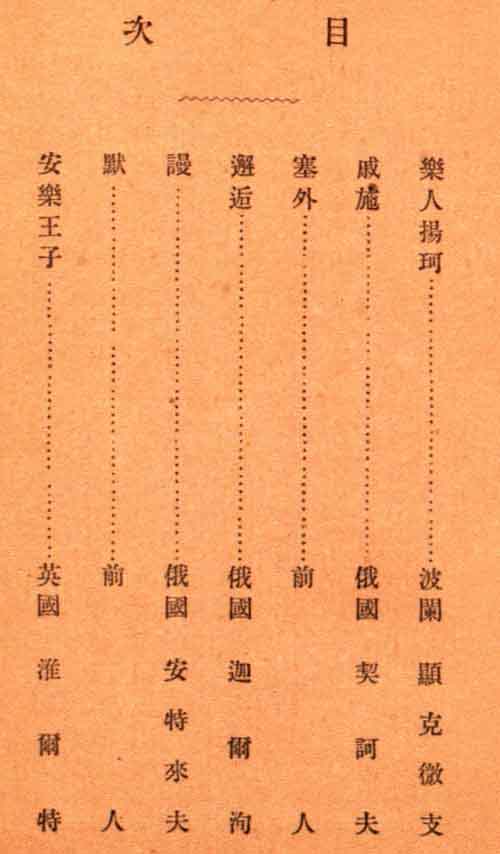 目次
樂人揚珂……波闌 顯克微支
戚施……俄國 契訶夫
塞外……前人
邂逅……俄國 迦爾洵
謾……俄國 安特來夫
默……前人
安樂王子……英國 淮爾特